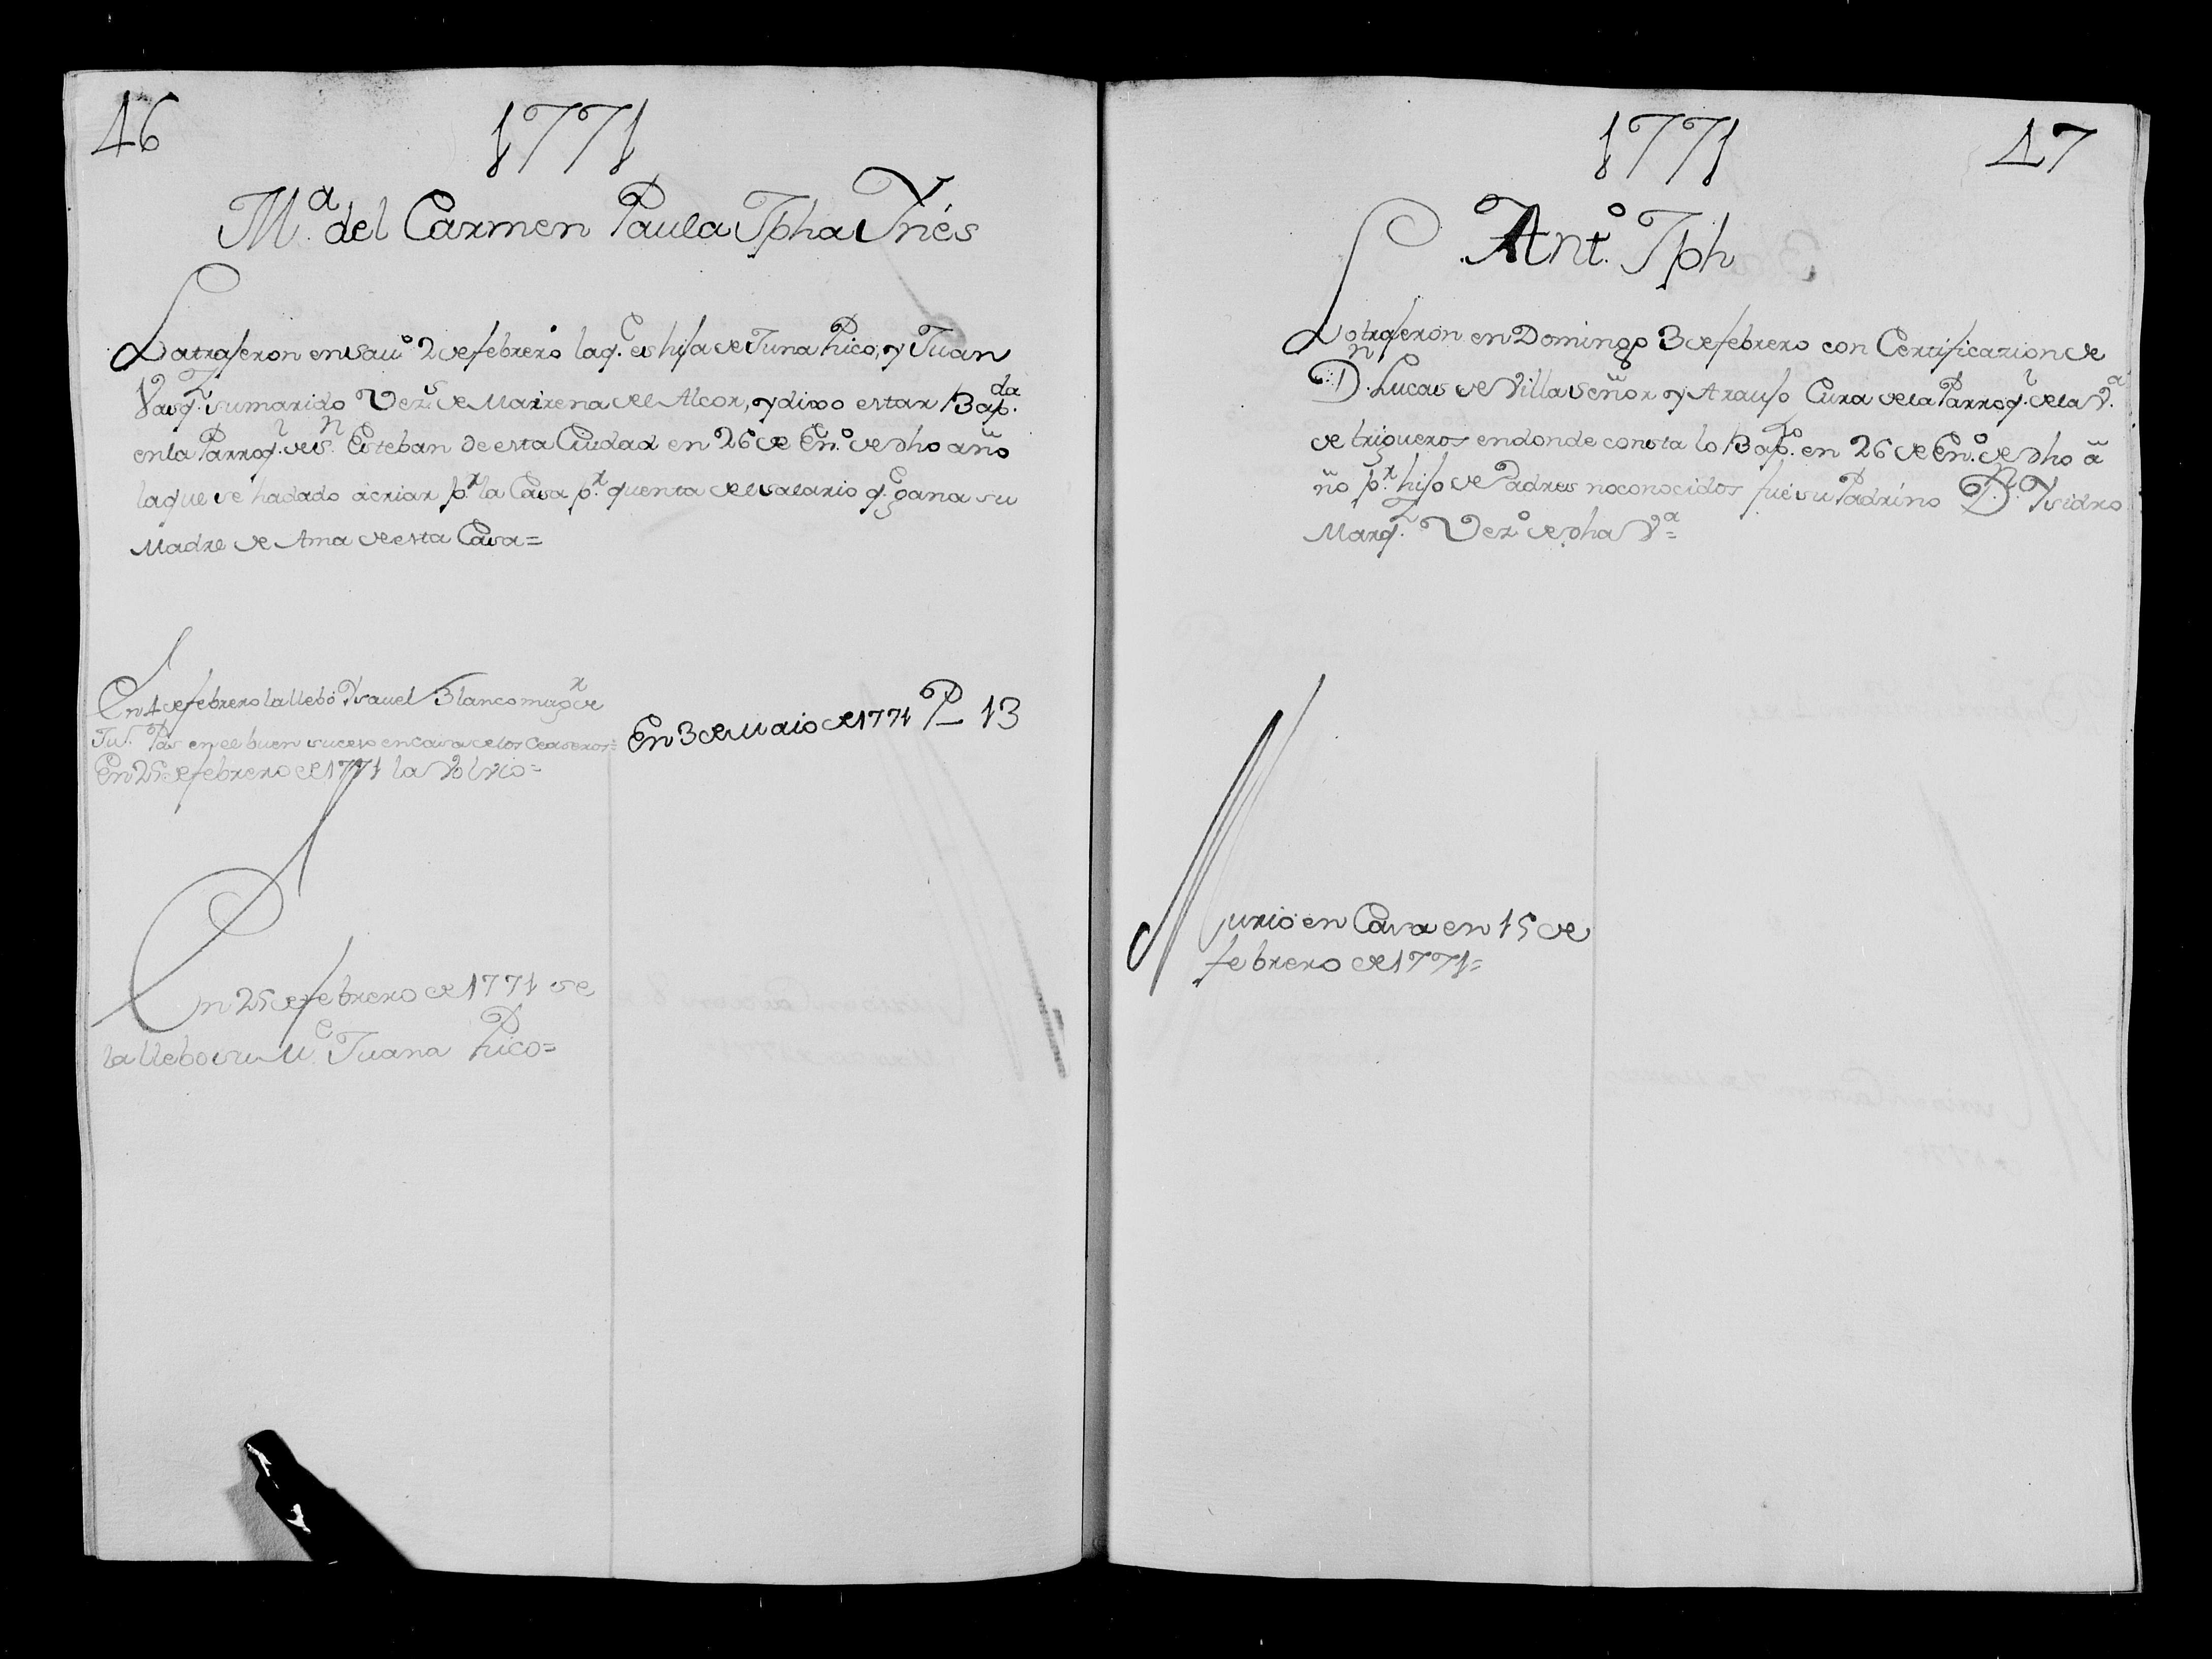 46
1771
M.ª del Carmen Paula Jpha Ynés
La trajeron en sau.º 2 de febrero la q.e es hija de Juna Rico, y Juan
Vasq.z su marido Vez.s de Mairena del Alcor, y dixo estar Bap.da
en la Parroq.l de S.n Esteban de esta Ciudad en 26 de En.º de dho año
la que se ha dado a criar p.r la Casa p.r quenta del salario q.e gana su
Madre de Ama de esta Casa=
En 4 de febrero la llebó Ysauel Blanco mug.r de
en el buen suceso en casa de los
En 25 de febrero de 1771 la Volvio=
En 3 de Maio de 1771 P 13
En 25 de febrero de 1771 se
la llebo su M.e Juana Rico=
1771
47
Ant.º Jph
Lo trajeron en Domingo 3 de febrero con Certificazion de
D.n Lucas de Villaseñor y Araujo Cura de la Parroq.l de la V.ª
de trigueros en donde consta lo Bap.do en 26 de En.º de dho a
ño p.r hijo de Padres no conocidos fué su Padrino D.n Ysidro
Marq.z Vez.º de dha V.ª=
Murió en Casa en 15 de
febrero de 1771=